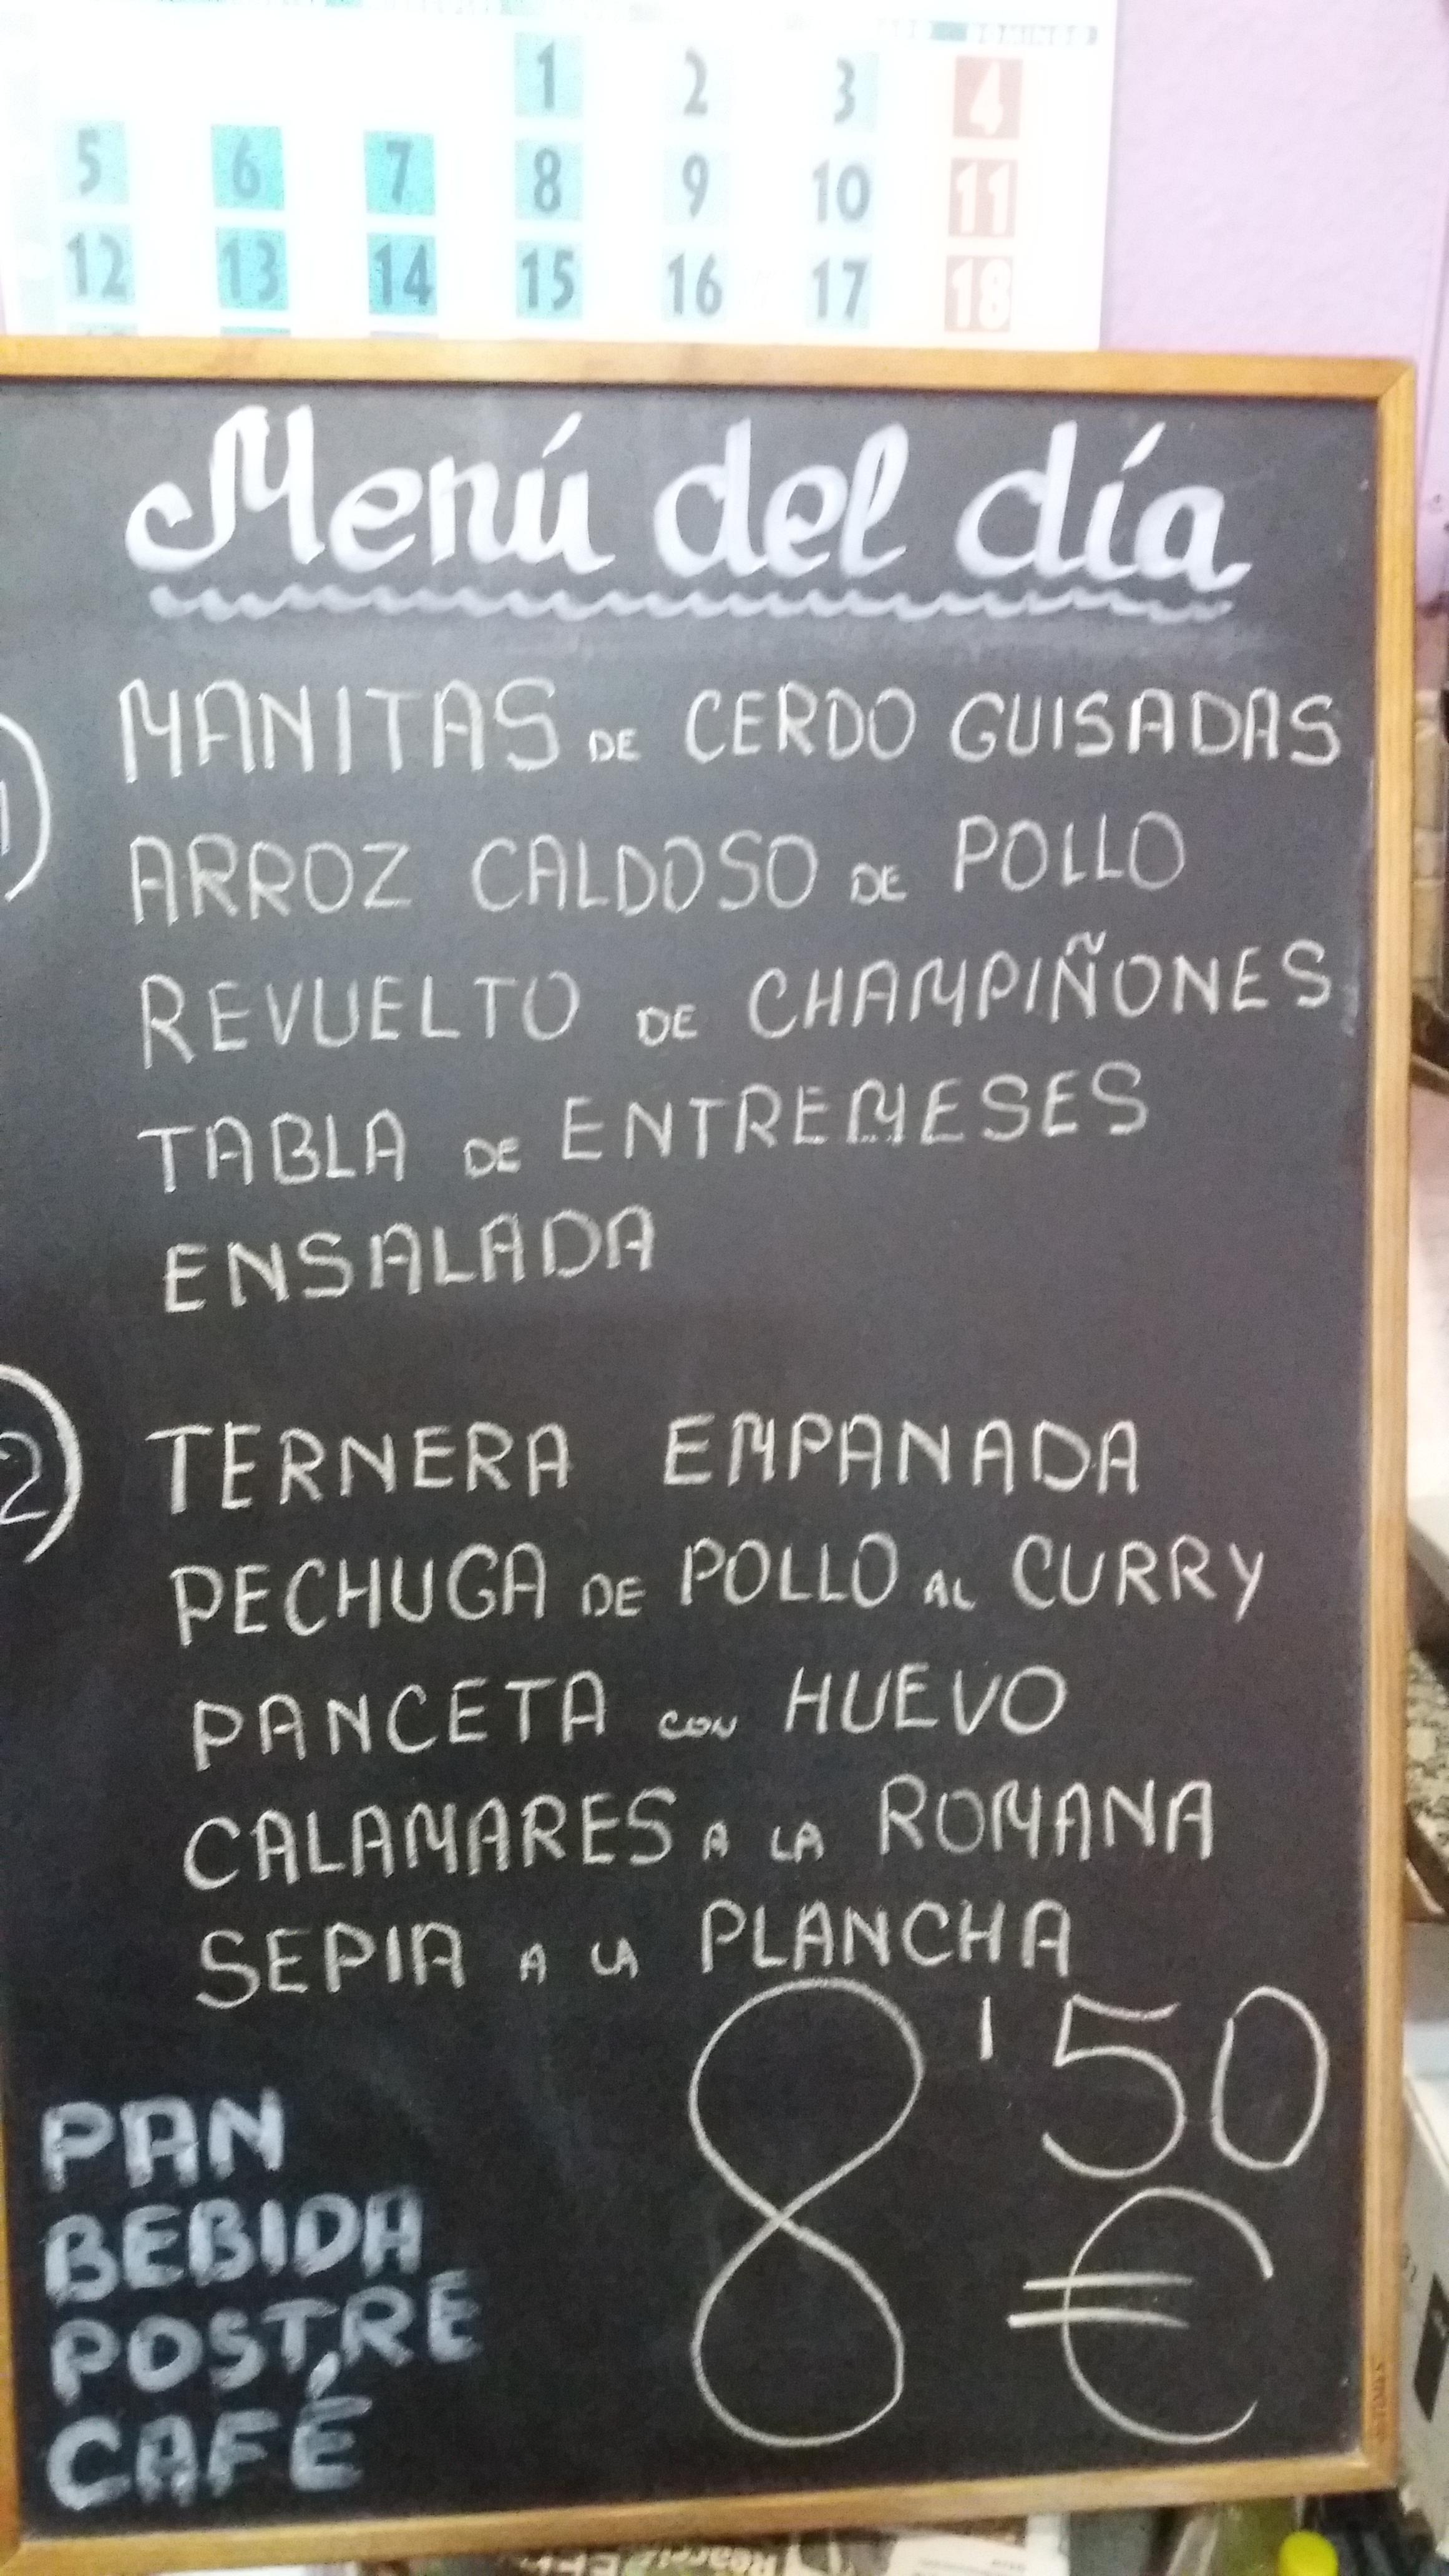 1 2 3 4
5 6 7 8 9 10 11
12 13 14 15 16 17 18
Menú del día
1
MANITAS DE CERDO GUISADAS
ARROZ CALDOSO DE POLLO
REVUELTO DE CHAMPIÑONES
TABLA DE ENTREMESES
ENSALADA
2
TERNERA EMPANADA
PECHUGA DE POLLO AL CURRY
PANCETA CON HUEVO
CALAMARES A LA ROMANA
SEPIA A LA PLANCHA
8'50
€
PAN
BEBIDA
POSTRE
CAFÉ